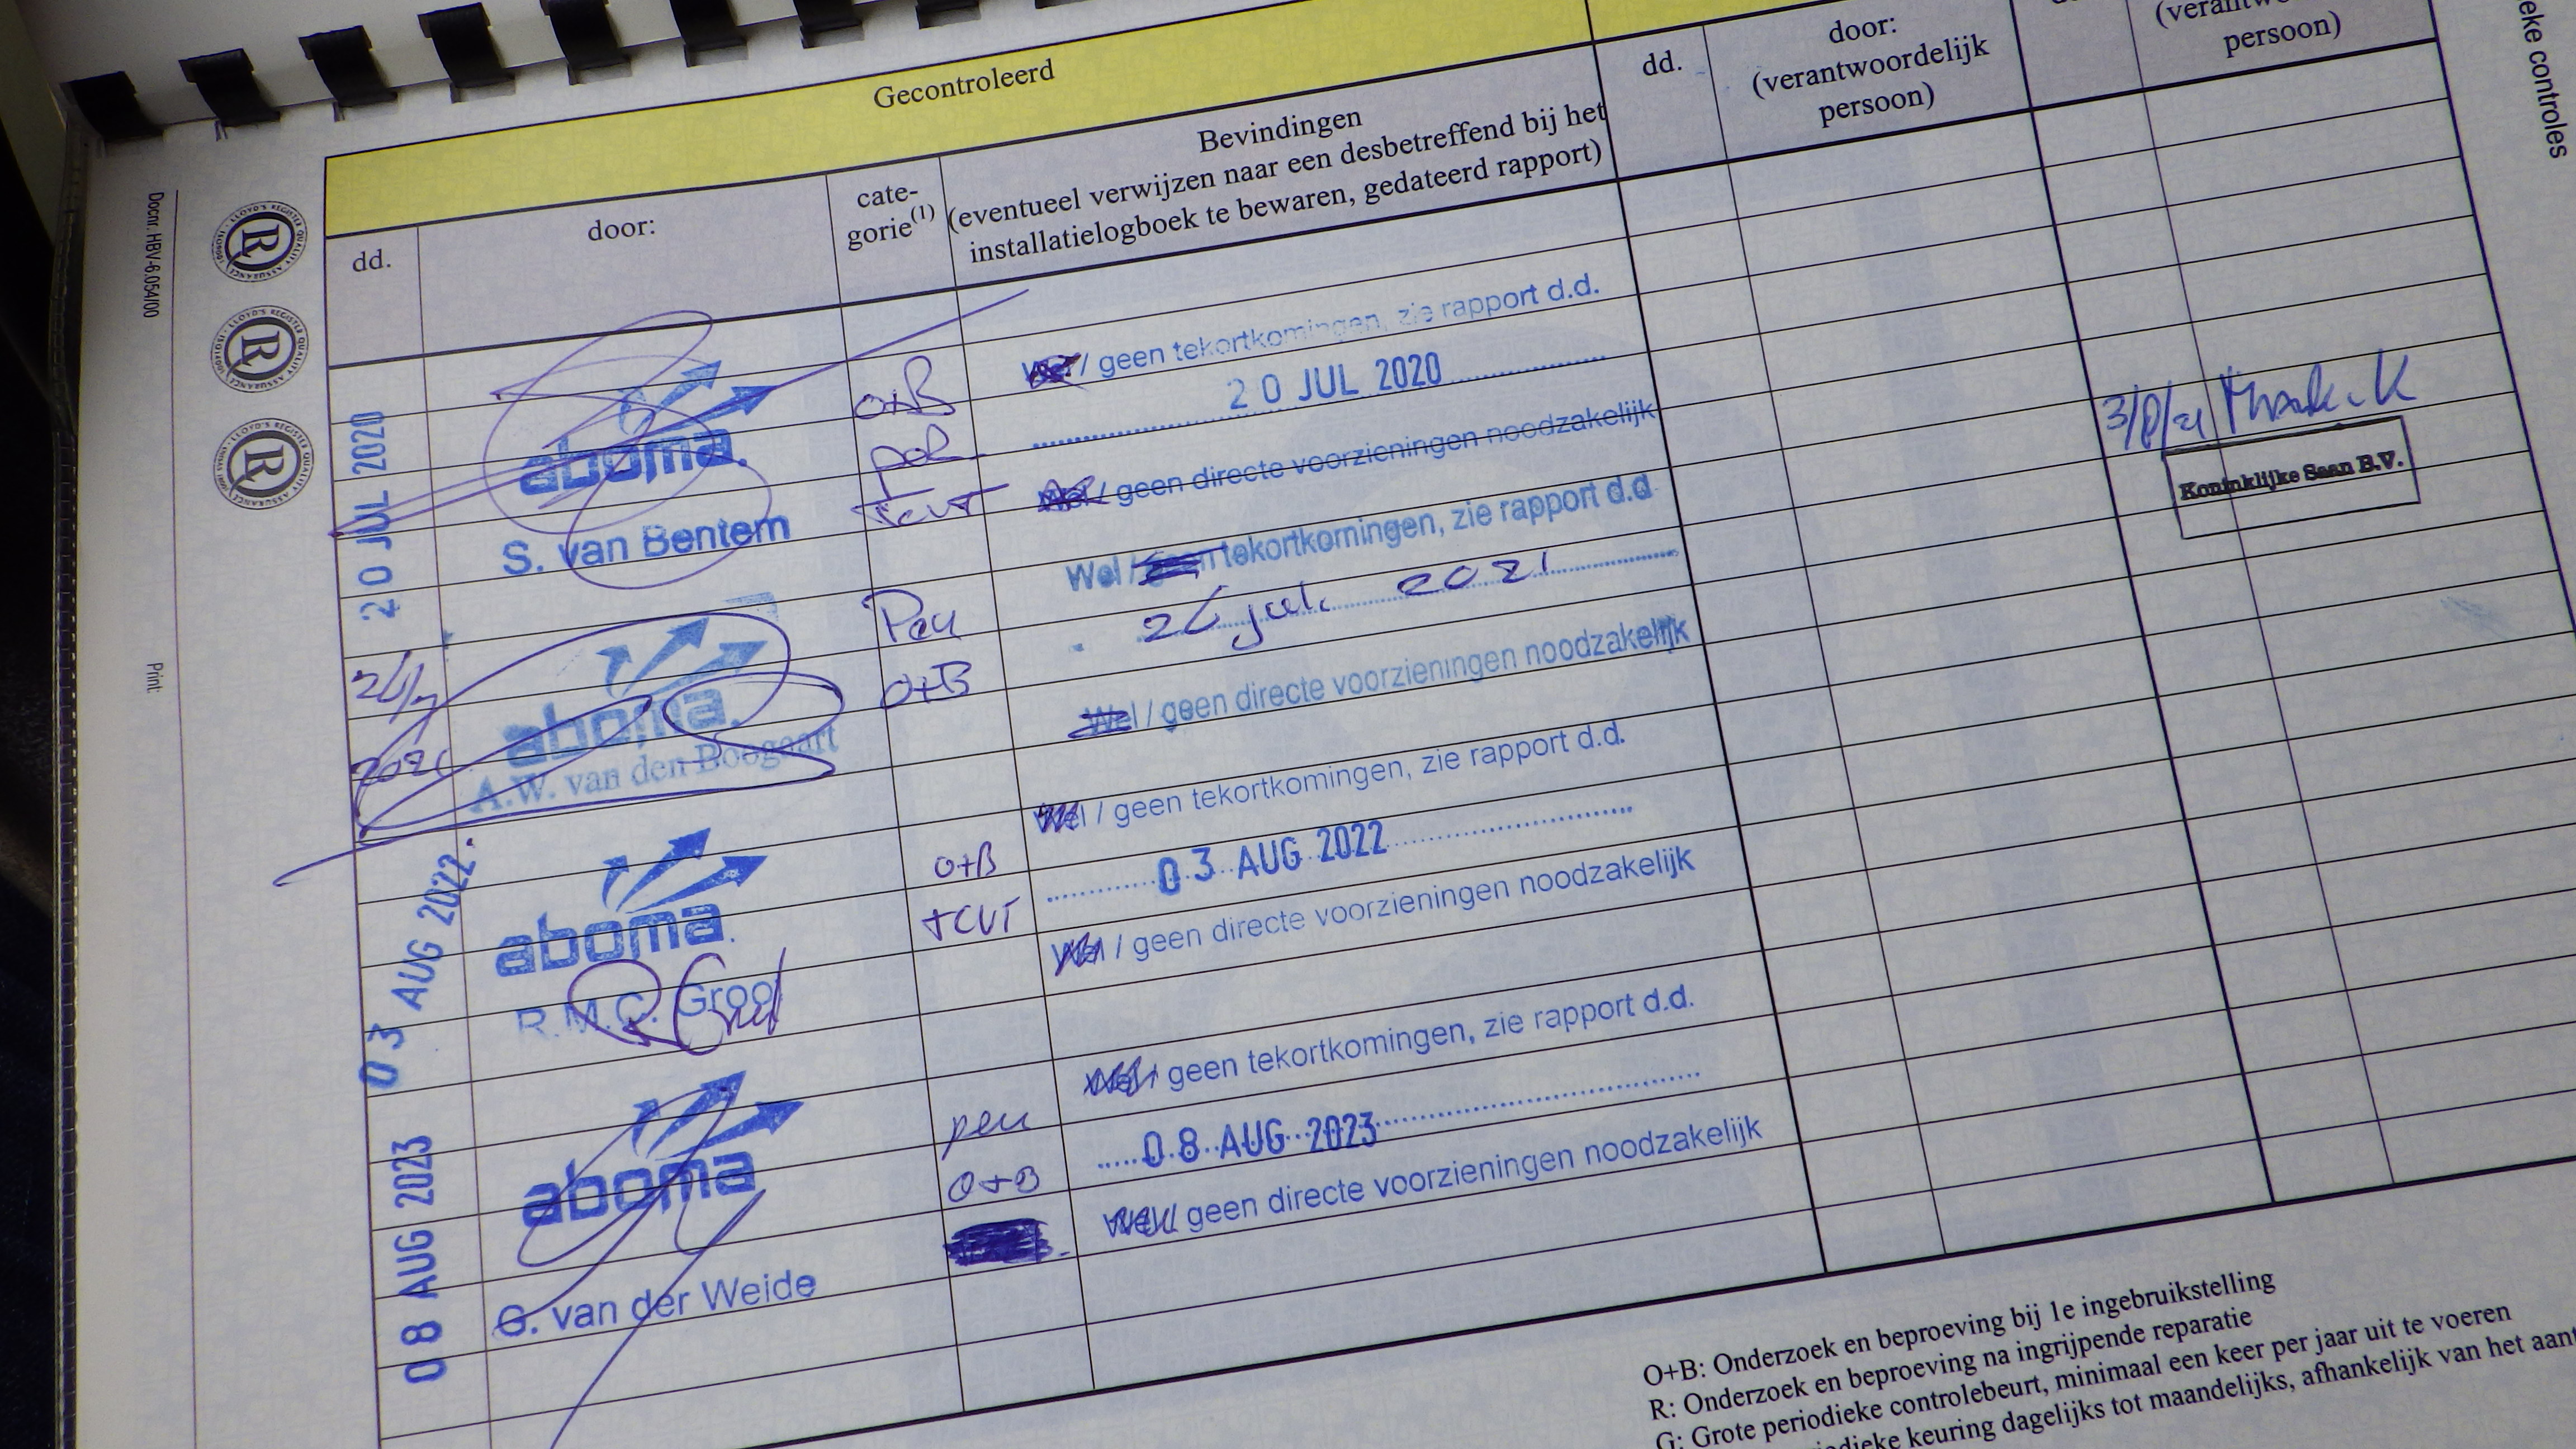 Gecontroleerd
dd.
door:
cate-
gorie(1)
Bevindingen
(eventueel verwijzen naar een desbetreffend bij het
installatielogboek te bewaren, gedateerd rapport)
dd.
door:
(verantwoordelijk
persoon)
persoon)
eke controles
Docnr. HBV-6.054/00
Print:
20 JUL 2020
aboma.
S. van Bentem
O+B
TCVT
Wel / geen tekortkomingen, zie rapport d.d.
20 JUL 2020
Wel / geen directe voorzieningen noodzakelijk
2021
aboma.
A.W. van den Boogaart
Peu
O+B
Wel / geen tekortkomingen, zie rapport d.d
26 juli 2021
Wel / geen directe voorzieningen noodzakelijk
3/8/21
Koninklijke Saan B.V.
03 AUG 2022
aboma.
R.M.C. Groot
O+B
TCVT
Wel / geen tekortkomingen, zie rapport d.d.
03 AUG 2022
Wel / geen directe voorzieningen noodzakelijk
08 AUG 2023
aboma
G. van der Weide
peu
O+B
Wel / geen tekortkomingen, zie rapport d.d.
08 AUG 2023
Wel / geen directe voorzieningen noodzakelijk
O+B: Onderzoek en beproeving bij 1e ingebruikstelling
R: Onderzoek en beproeving na ingrijpende reparatie
G: Grote periodieke controlebeurt, minimaal een keer per jaar uit te voeren
odieke keuring dagelijks tot maandelijks, afhankelijk van het aant